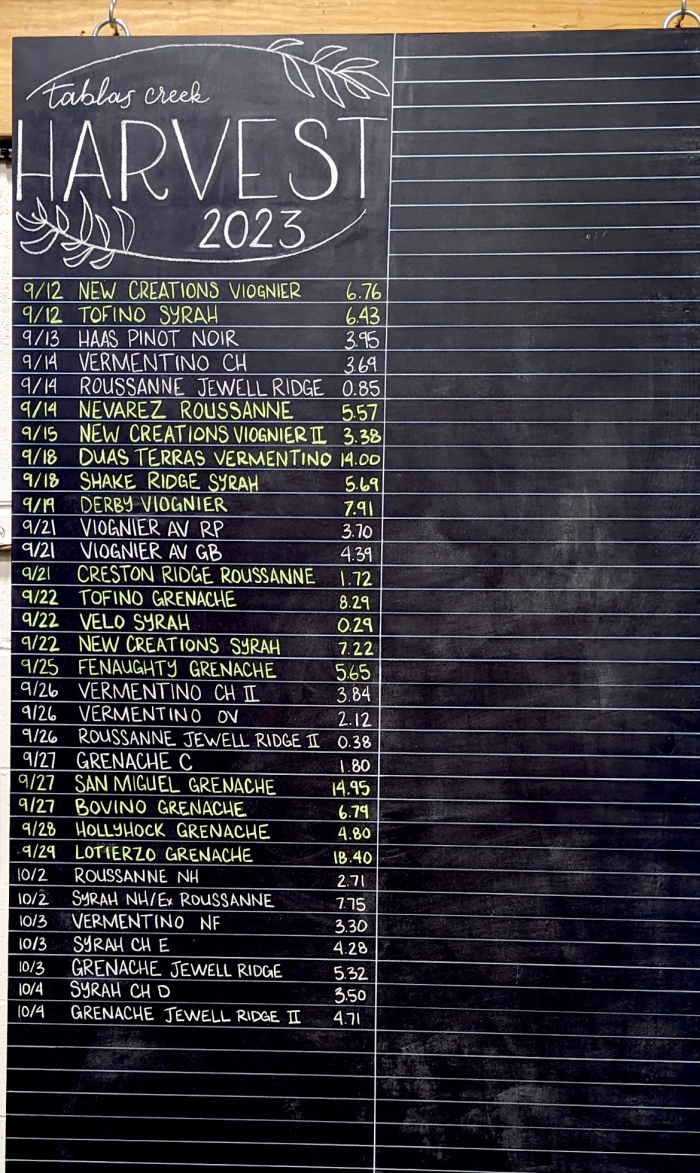 tablas creek
HARVEST
2023
9/12 NEW CREATIONS VIOGNIER 6.76
9/12 TOFINO SYRAH 6.43
9/13 HAAS PINOT NOIR 3.95
9/14 VERMENTINO CH 3.69
9/14 ROUSSANNE JEWELL RIDGE 0.85
9/14 NEVAREZ ROUSSANNE 5.57
9/15 NEW CREATIONS VIOGNIER II 3.38
9/18 DUAS TERRAS VERMENTINO 14.00
9/18 SHAKE RIDGE SYRAH 5.69
9/19 DERBY VIOGNIER 7.91
9/21 VIOGNIER AV RP 3.70
9/21 VIOGNIER AV GB 4.39
9/21 CRESTON RIDGE ROUSSANNE 1.72
9/22 TOFINO GRENACHE 8.29
9/22 VELO SYRAH 0.29
9/22 NEW CREATIONS SYRAH 7.22
9/25 FENAUGHTY GRENACHE 5.65
9/26 VERMENTINO CH II 3.84
9/26 VERMENTINO OV 2.12
9/26 ROUSSANNE JEWELL RIDGE II 0.38
9/27 GRENACHE C 1.80
9/27 SAN MIGUEL GRENACHE 14.95
9/27 BOVINO GRENACHE 6.79
9/28 HOLLYHOCK GRENACHE 4.80
9/29 LOTIERZO GRENACHE 18.40
10/2 ROUSSANNE NH 2.71
10/2 SYRAH NH/Ex ROUSSANNE 7.75
10/3 VERMENTINO NF 3.30
10/3 SYRAH CH E 4.28
10/3 GRENACHE JEWELL RIDGE 5.32
10/4 SYRAH CH D 3.50
10/4 GRENACHE JEWELL RIDGE II 4.71